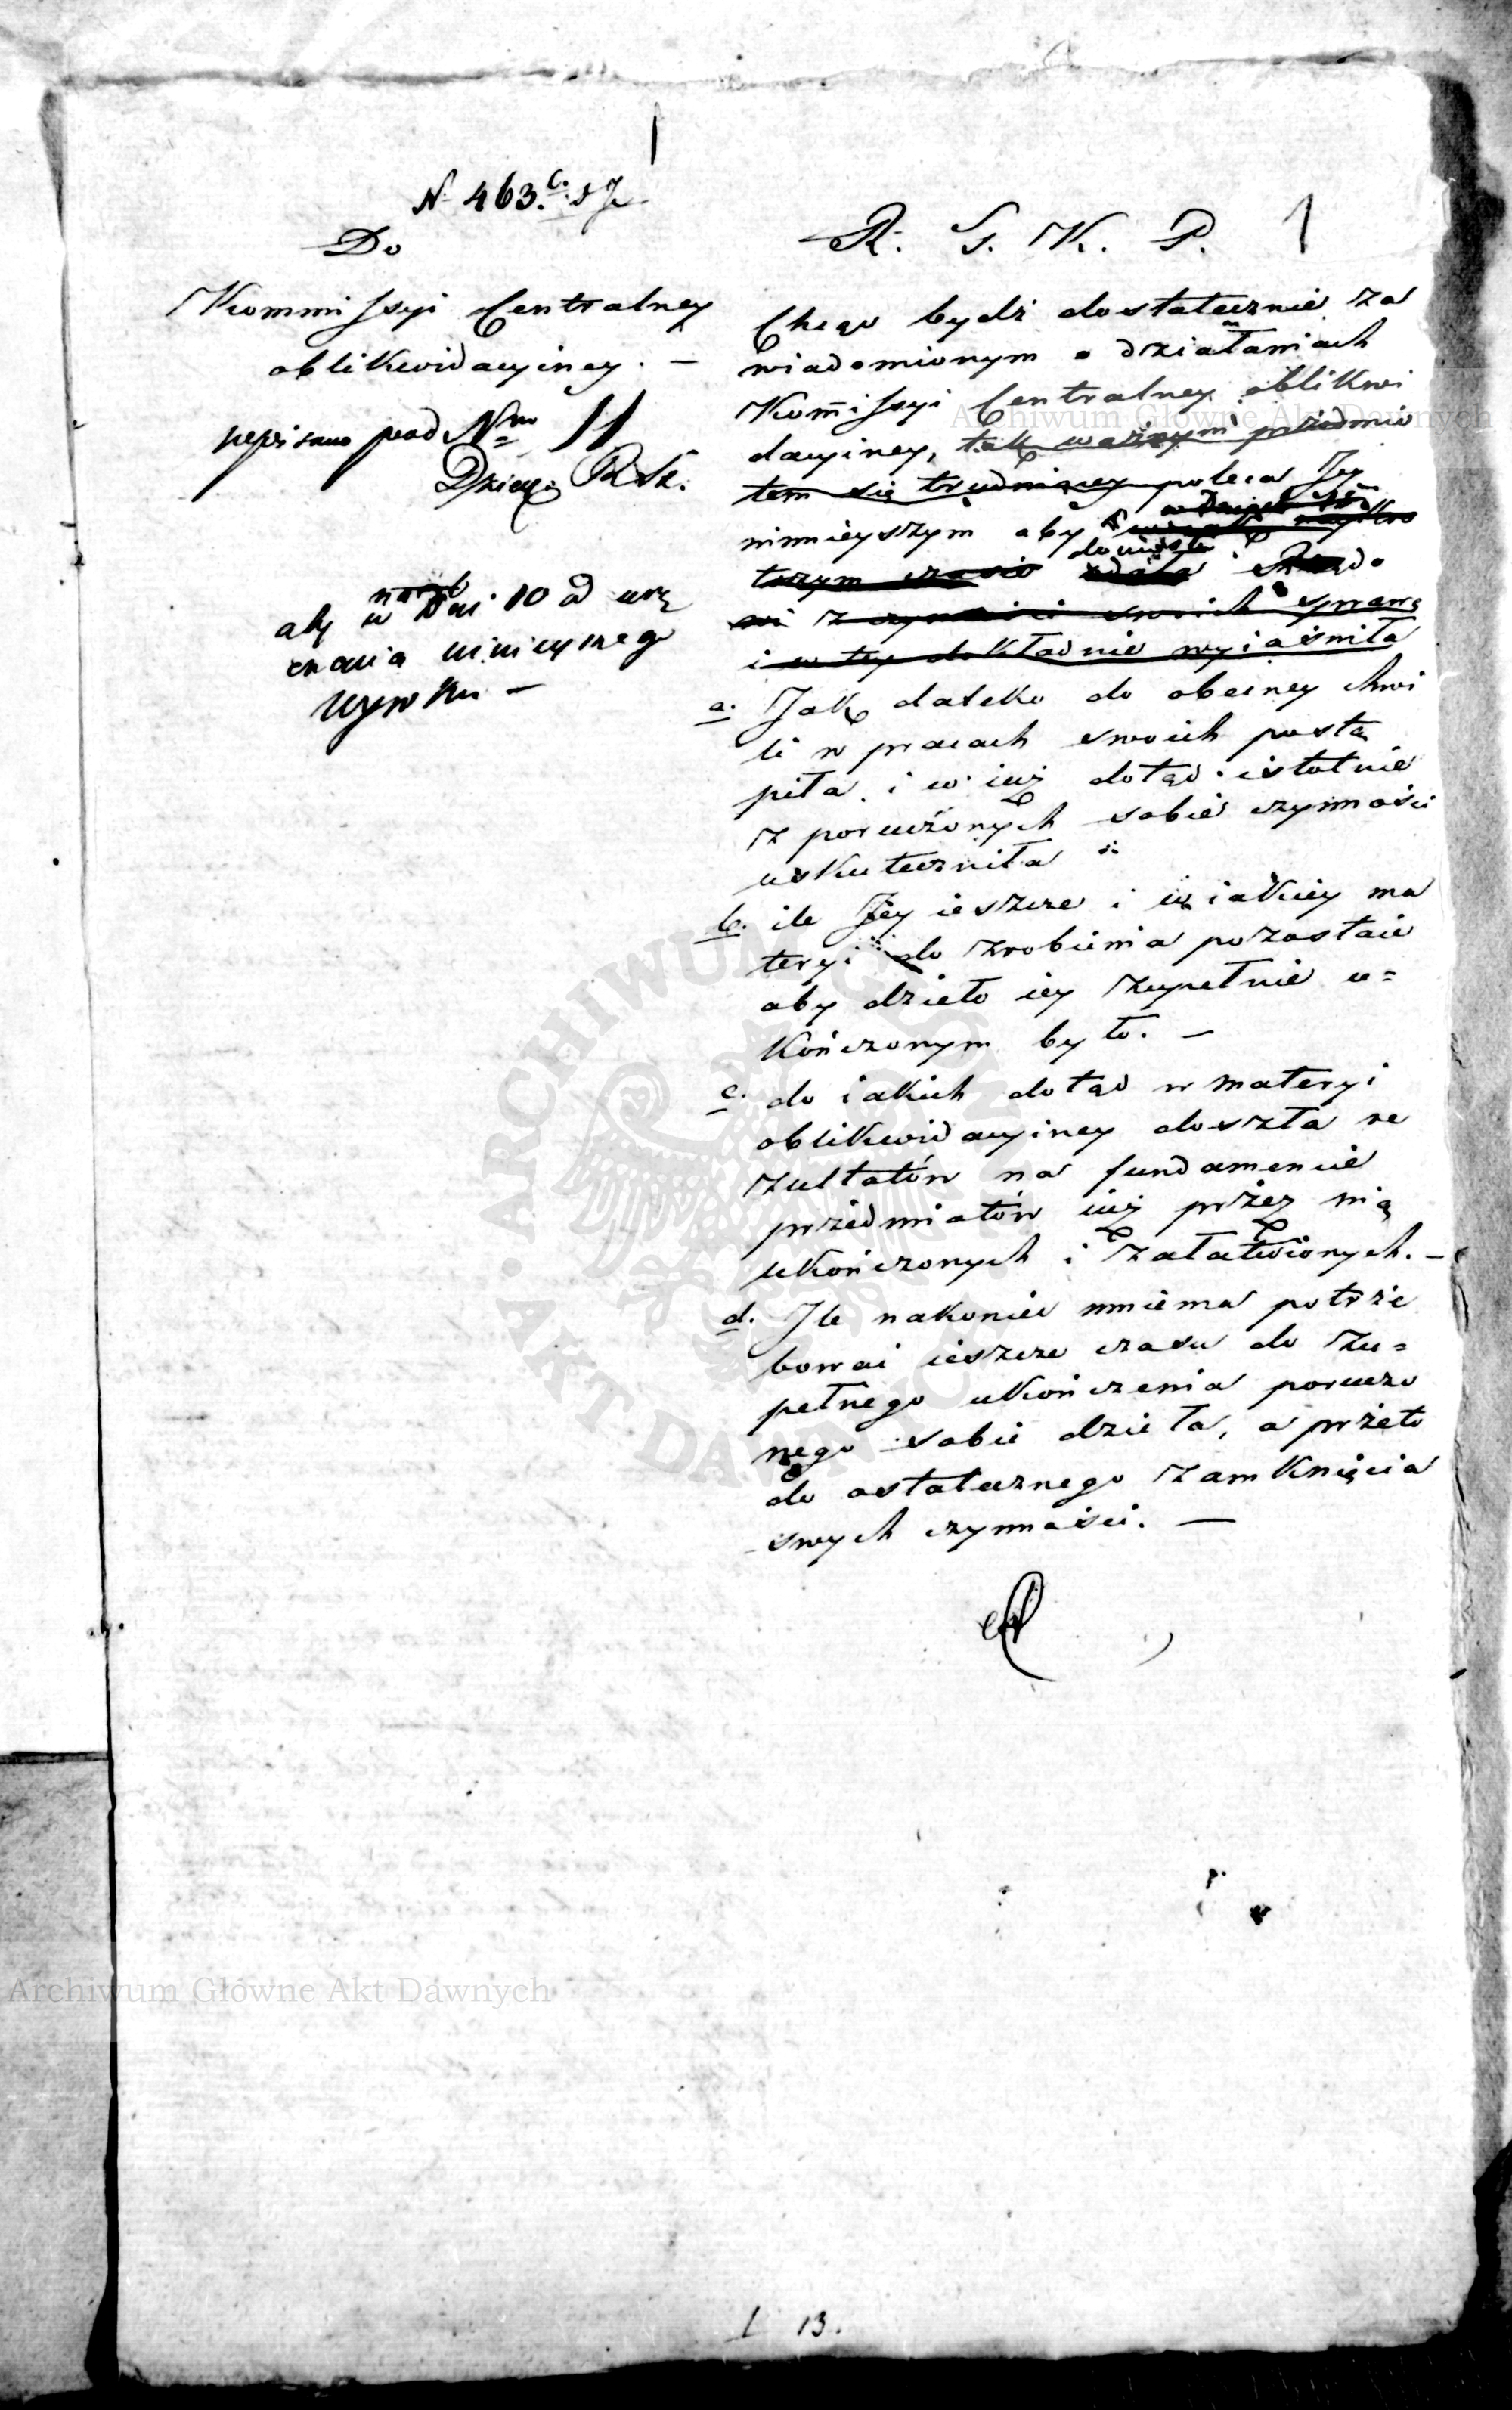 1
N 463.
Do
Kommissyi Centralney
oblikwidacyiney. —
pepisano pod Nm 11
Dzien: R Sk.
w Dni 10 od
aby
ninieyszego
—
R. S. K. P. 1
Chcąc bydź dostatecznie za
wiadomionym o działaniach
Kom̃issyi Centralney oblikwi
dacyiney, tak ważnym przedmio
tem się trudniącey poleca Jey
ninieyszym aby
donio
tszym czasie zdała Rządo
wi z czynności swoich sprawę
i w tey dokładnie wyiaśniła
a. Jak daleko do obecney chwi
li w pracach swoich postą
piła i co iuż dotąd istotnie
z poruczonych sobie czynności
uskuteczniła
b. ile Jey ieszcze i w iakiey ma
teryi do zrobienia pozostaie
aby dzieło iey zupełnie u=
kończonym było. —
c. do iakich dotąd w materyi
oblikwidacyiney doszła re
zultatów na fundamencie
przedmiotów iuż przez nią
ukończonych i załatwionych. —
d. Ile nakoniec mniema potrze
bować ieszcze czasu do zu=
pełnego ukończenia poruczo
nego sobie dzieła, a przeto
do ostatecznego zamknięcia
swych czynności. —
1 13.
Archiwum Główne Akt Dawnych
Archiwum Główne Akt Dawnych
ARCHIWUM GŁÓWNE AKT DAWNYCH